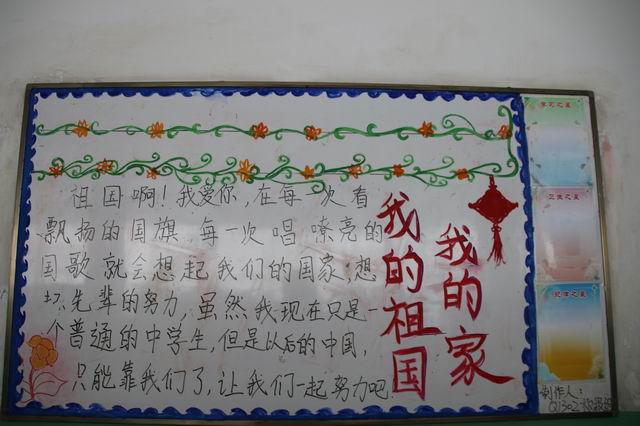 祖国啊！我爱你，在每一次看
飘扬的国旗，每一次唱嘹亮的
国歌就会想起我们的国家；想
先辈的努力，虽然我现在只是一
个普通的中学生，但是以后的中国，
只能靠我们了，让我们一起努力吧
我的祖国
我的家
学习之星
卫生之星
纪律之星
制作人：